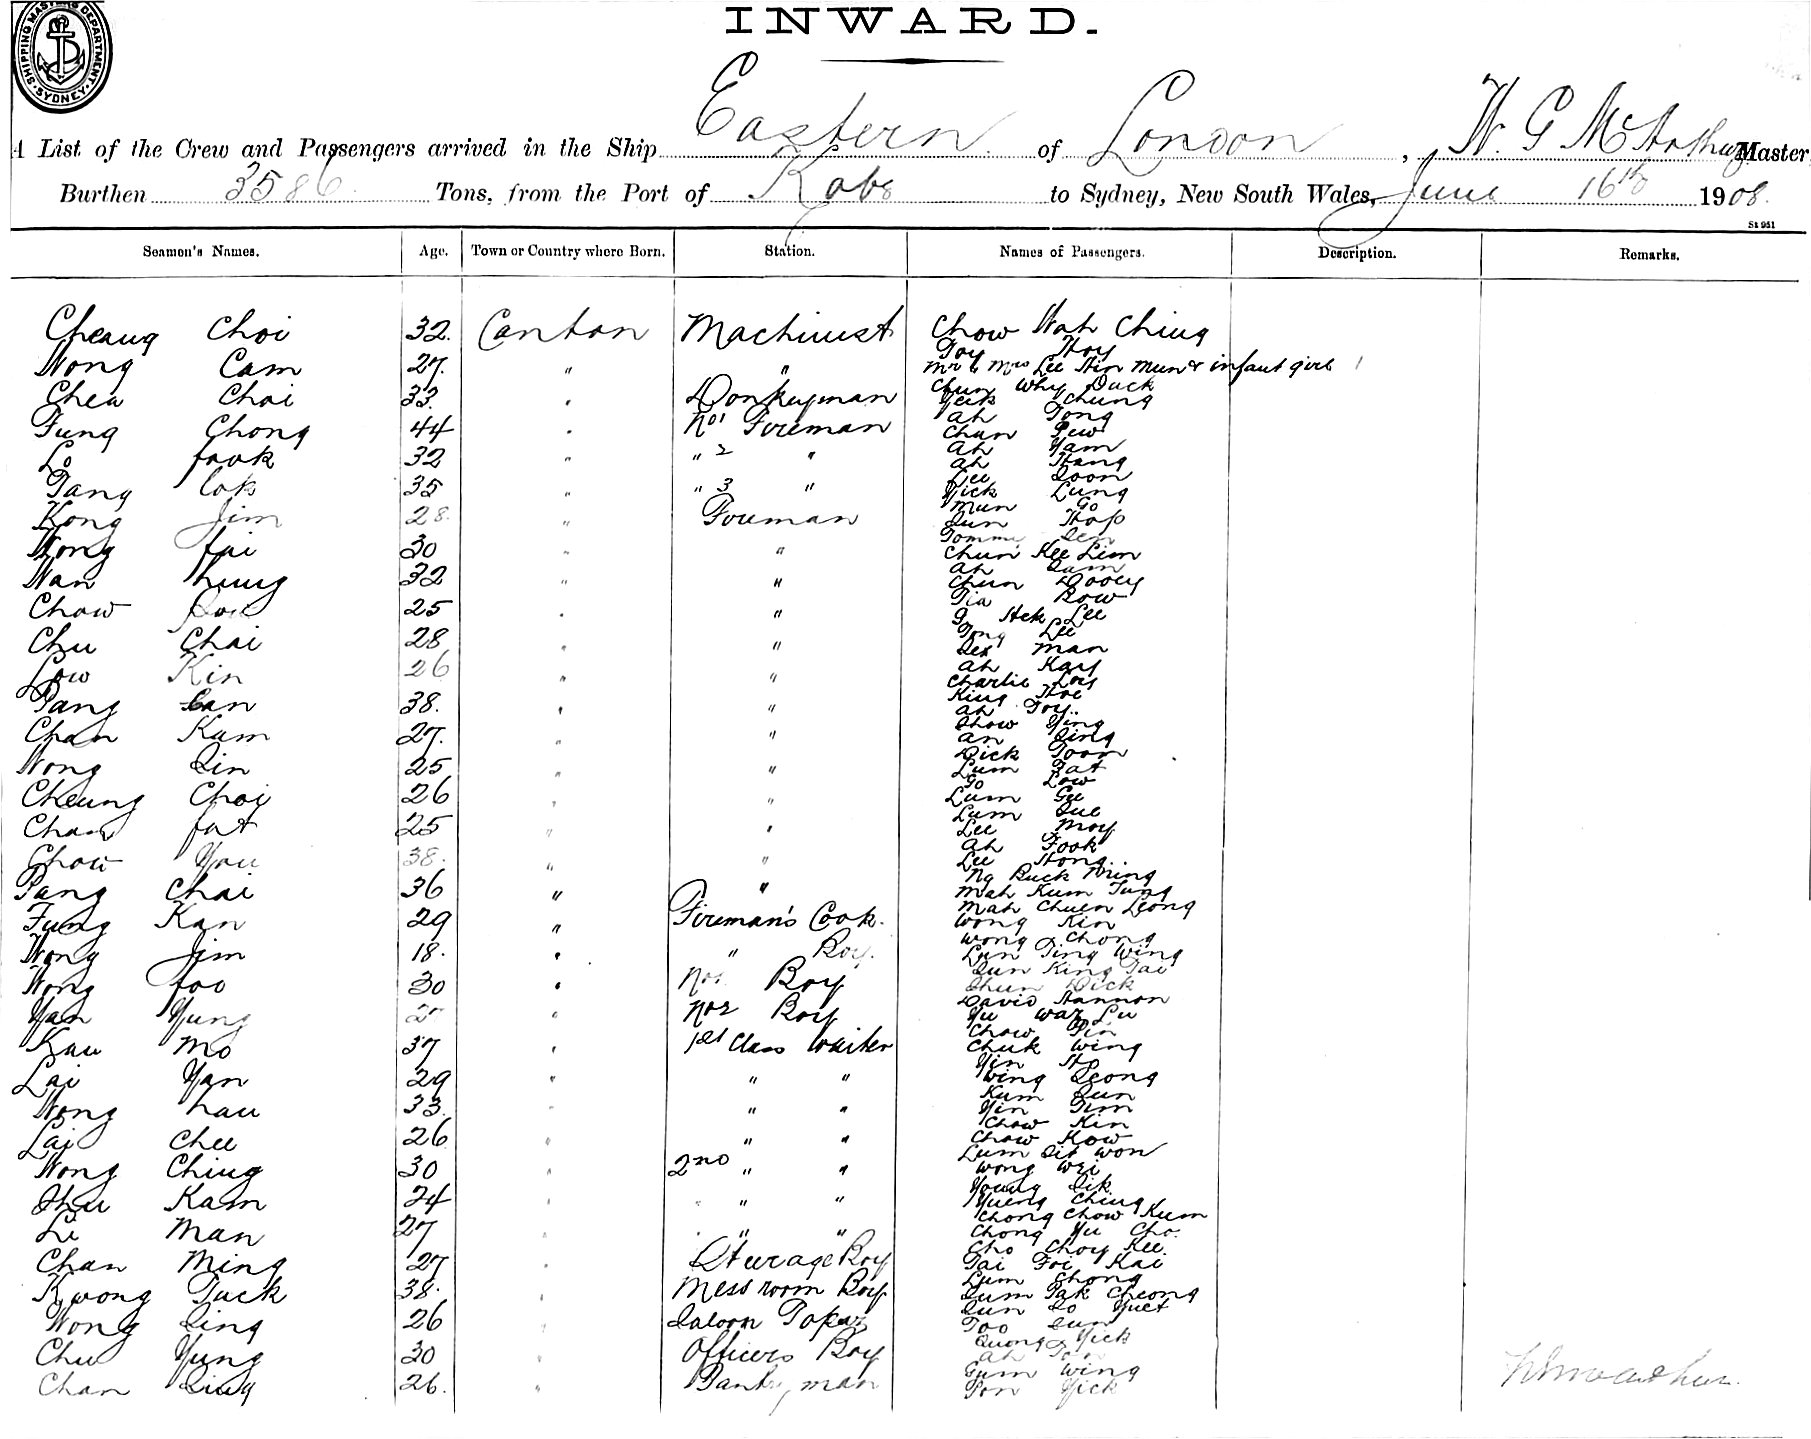 SHIPPING MASTER'S DEPARTMENT SYDNEY
INWARD.
A List of the Crew and Passengers arrived in the Ship Eastern of London, W. G McArthur Master
Burthen 3586 Tons, from the Port of Kobe to Sydney, New South Wales, June 16th 1908.
St 951
Seamen's Names. Age. Town or Country where Born. Station. Names of Passengers. Description. Remarks.
Cheang Choi 32. Canton Machinist Chow Wah Ching
Toy Hoy
Wong Cam 27. " " Mr & Mrs Lee Hin Mun & infant girl
Chun Why Duck
Chea Choi 33. " Donkeyman Yeik Chung
Ah Tong
Fung Chong 44 " No1 Fireman Chun Pew
Ah Yam
Lo fook 32 " " 2 " Ah Hang
Lee Soon
Tang Cok 35 " " 3 " Yick Lung
Mun Go
Kong Jim 28. " Fireman Sun Hop
Tommy Sen
Wong fai 30 " Chun Kee Lim
Ah Sam
Wan hung 32 " " Chun Dooey
Tia Bow
Chow 25 " " Hek Lee
Tong Lee
Chu Chai 28 " Man
Ah Kay
Low Kin 26 " " Charlie Loy
King Hoe
Pang Can 38. " " Ah Toy.
Show Ying
Chan Kum 27. " " An Sing
Dick Toom
Wong Sin 25 " " Lum Fat
Go Low
Cheung Choi 26 " " Lum Gee
Lum Sue
Chan fat 25 " " Lee Moy
Ah Fook
Chow You 38. " " Lee Hong
Ng Buck Ming
Pang Chai 36 " " Mah Kum Tung
Mah Chuen Leong
Fung Kan 29 " Fireman's Cook. Wong Kin
Wong Chong
Wong Jim 18. " " Boy. Lun Ting Wing
Sun King Tai
Wong foo 30 " No1 Boy Shun Dick
David Hannon
Yan Yung 2 " No2 Boy Yu War Lu
Chow Tin
Kau Mo 37 " 1st Class Waiter Chuk Wing
Yin Ho
Lai Yan 29 " " " Wing Leong
Kum Sun
Wong hau 33. " " " Yin Tim
Chow Kin
Lai Chee 26 " " " Chow Kow
Lum Sit Won
Wong Ching 30 " 2nd " " Wong Wei
Young Sik
Shu Kam 24 " " " Yueng Ching
Chong Chow Kum
Li Man 27 " " Chong Yu Cho.
Cho Choy Kee.
Chan Ming 27 " Steerage Boy Tai Foi Kai
Lum Chong
Kwong Tuck 38. " Mess room Boy Lum Pak Cheong
Sun So Yuet
Wong Sing 26 " Saloon Topaz Too Sun
Quong Yick
Chu Yung 30 " Officers Boy Ah
Gum Wing
Chan Sing 26. " Pantryman Pon Yick